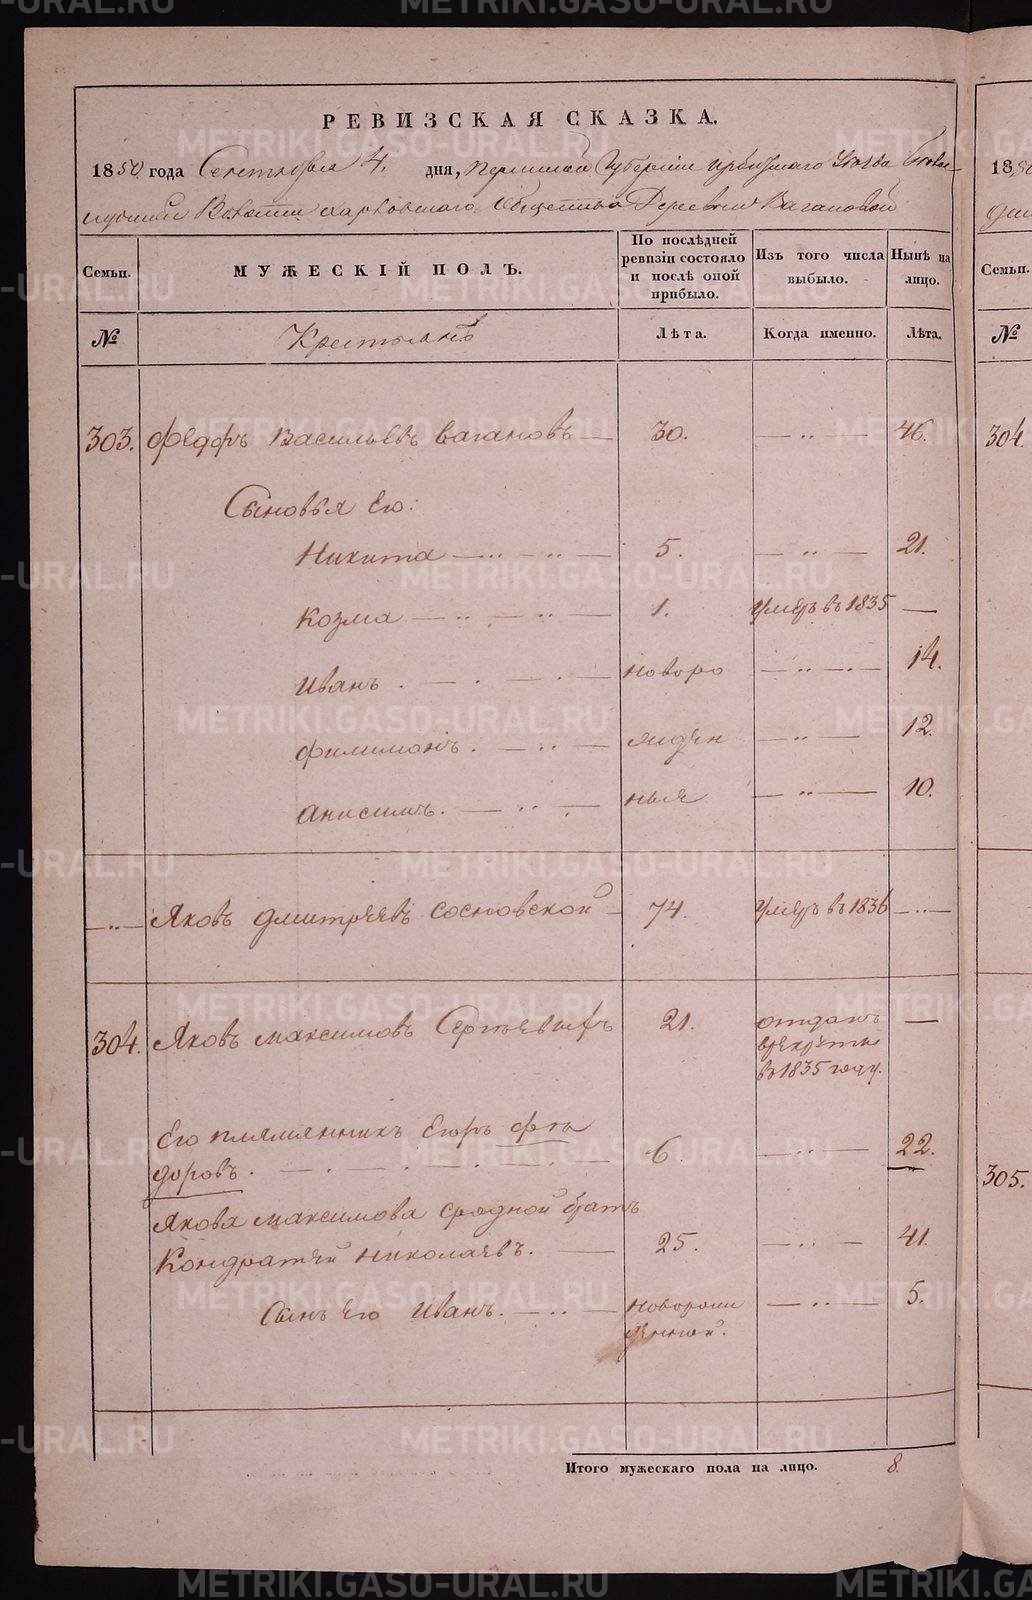 РЕВИЗСКАЯ СКАЗКА.
1850 года Сентября 4. дня, Пермской Губернии Ирбитского Уезда
Волости Харловского Общества Деревни Вагановой
Семьи.
МУЖЕСКІЙ ПОЛЪ.
По послѣдней ревизіи состояло и послѣ оной прибыло.
Изъ того числа выбыло.
Нынѣ на лицо.
Семьи.
№
Крестьянъ
Лѣта.
Когда именно.
Лѣта.
№
303. Федоръ Васильевъ Вагановъ — 30. — „ — 46.
304
Сыновья Его:
Никита — „ — „ — 5. — „ — 21.
Козма — „ — „ — 1. умеръ въ 1835 —
Иванъ . — . — . — новоро — „ — . — 14.
Филимонъ . — „ — жден — „ — 12.
Анисимъ. — „ — ныя — „ — 10.
— „ — Яковъ Дмитреевъ Сосновской — 74. умеръ въ 1836 — „ —
304. Яковъ Максимовъ Сергеевыхъ 21. отданъ —
в рекруты
въ 1835 году.
Его племянникъ Егоръ Фео
доровъ . — . — . — . — 6. — „ — 22.
305.
Якова Максимова сродной братъ
Кондратей Николаевъ. — 25. — „ — 41.
Сынъ Его Иванъ. — „ — новорож — „ — 5.
денной.
Итого мужескаго пола на лицо. 8.
METRIKI.GASO-URAL.RU